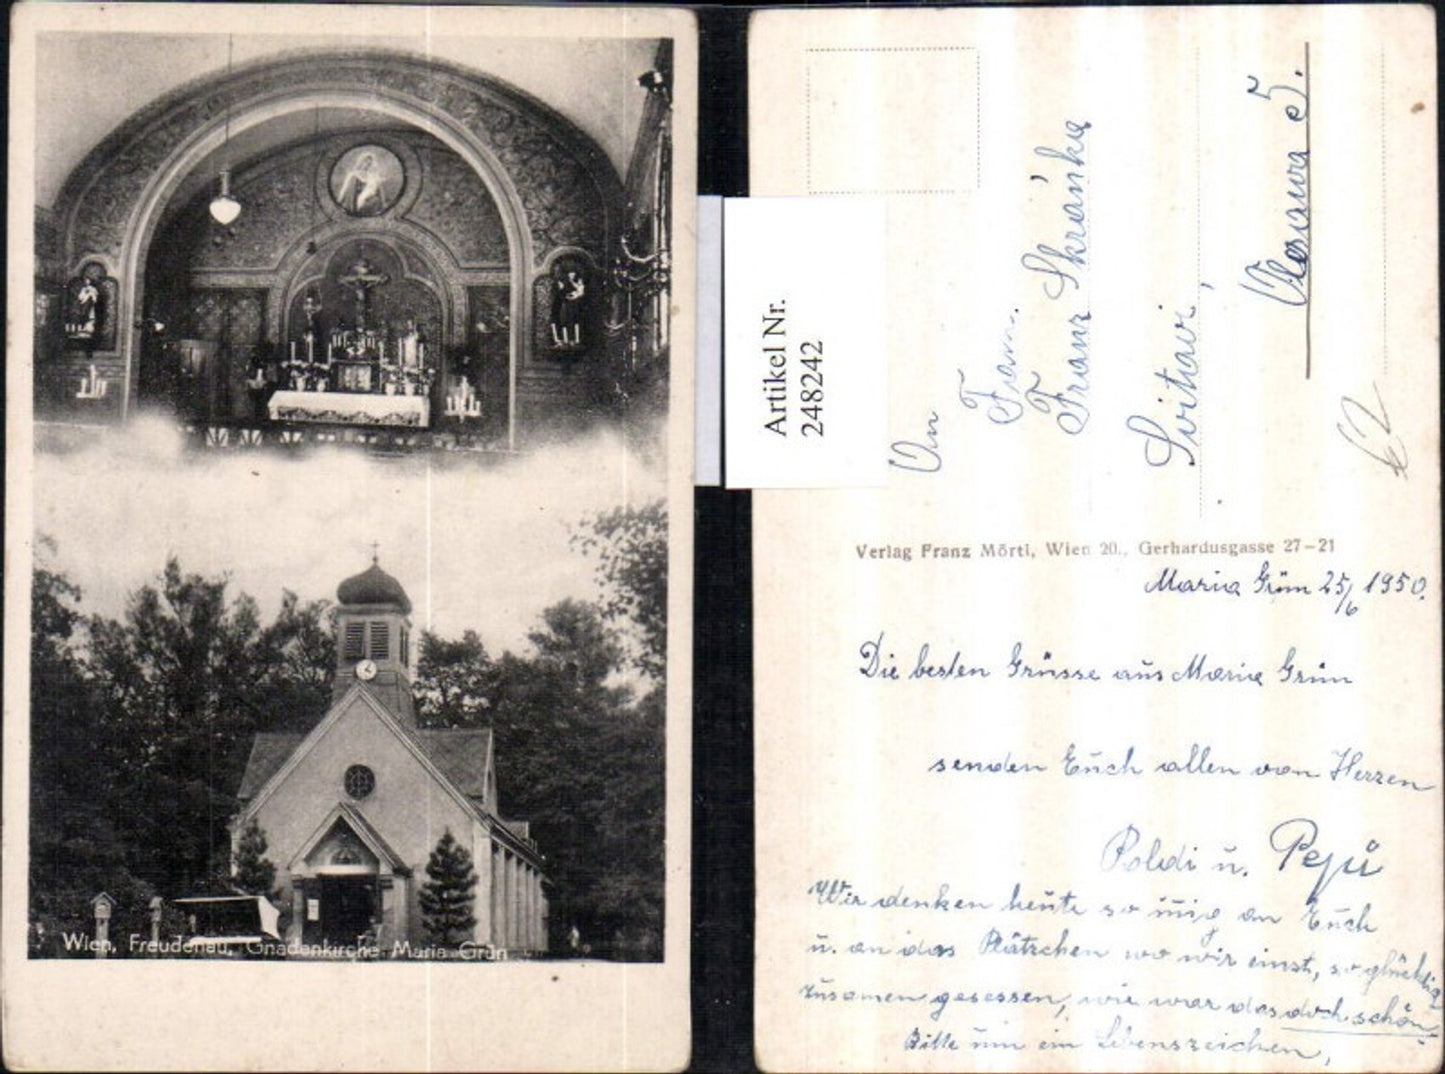 Wien, Freudenau, Gnadenkirche Maria Grün
Artikel Nr.
248242
An
Fam.
Franz Skránka
Svitavi,
5.
Verlag Franz Mörtl, Wien 20., Gerhardusgasse 27-21
Maria Grün 25/6 1950.
Die besten Grüsse aus Maria Grün
senden Euch allen von Herzen
Poldi u.
Wir denken heute so an Euch
u. an das Plätzchen wo wir einst, so glücklig
zusamen gesessen, wie war das doch schön
Bitte um ein Lebenszeichen,